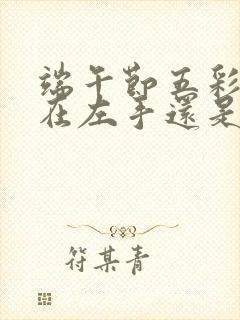 端午節五彩
在左手還是
符某青